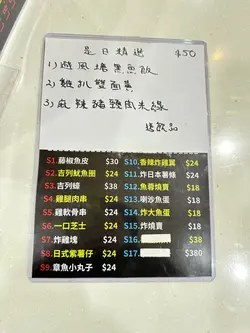 是日精選 $50
1) 避風塘黑魚飯
2) 雞扒雙面黃
3) 麻辣豬頸肉米線
送飲品
S1. 藤椒魚皮 $30
S2. 吉列魷魚圈 $24
S3. 吉列蠔 $38
S4. 雞腿肉串 $24
S5. 雞軟骨串 $24
S6. 一口芝士 $24
S7. 炸雞塊 $24
S8. 日式紫薯仔 $24
S9. 章魚小丸子 $24
S10. 香辣炸雞翼 $24
S11. 炸日本薯條 $24
S12. 魚尋燒賣 $18
S13. 喇沙魚蛋 $18
S14. 炸大魚蛋 $18
S15. 炸燒賣 $18
S16. $38
S17. $380